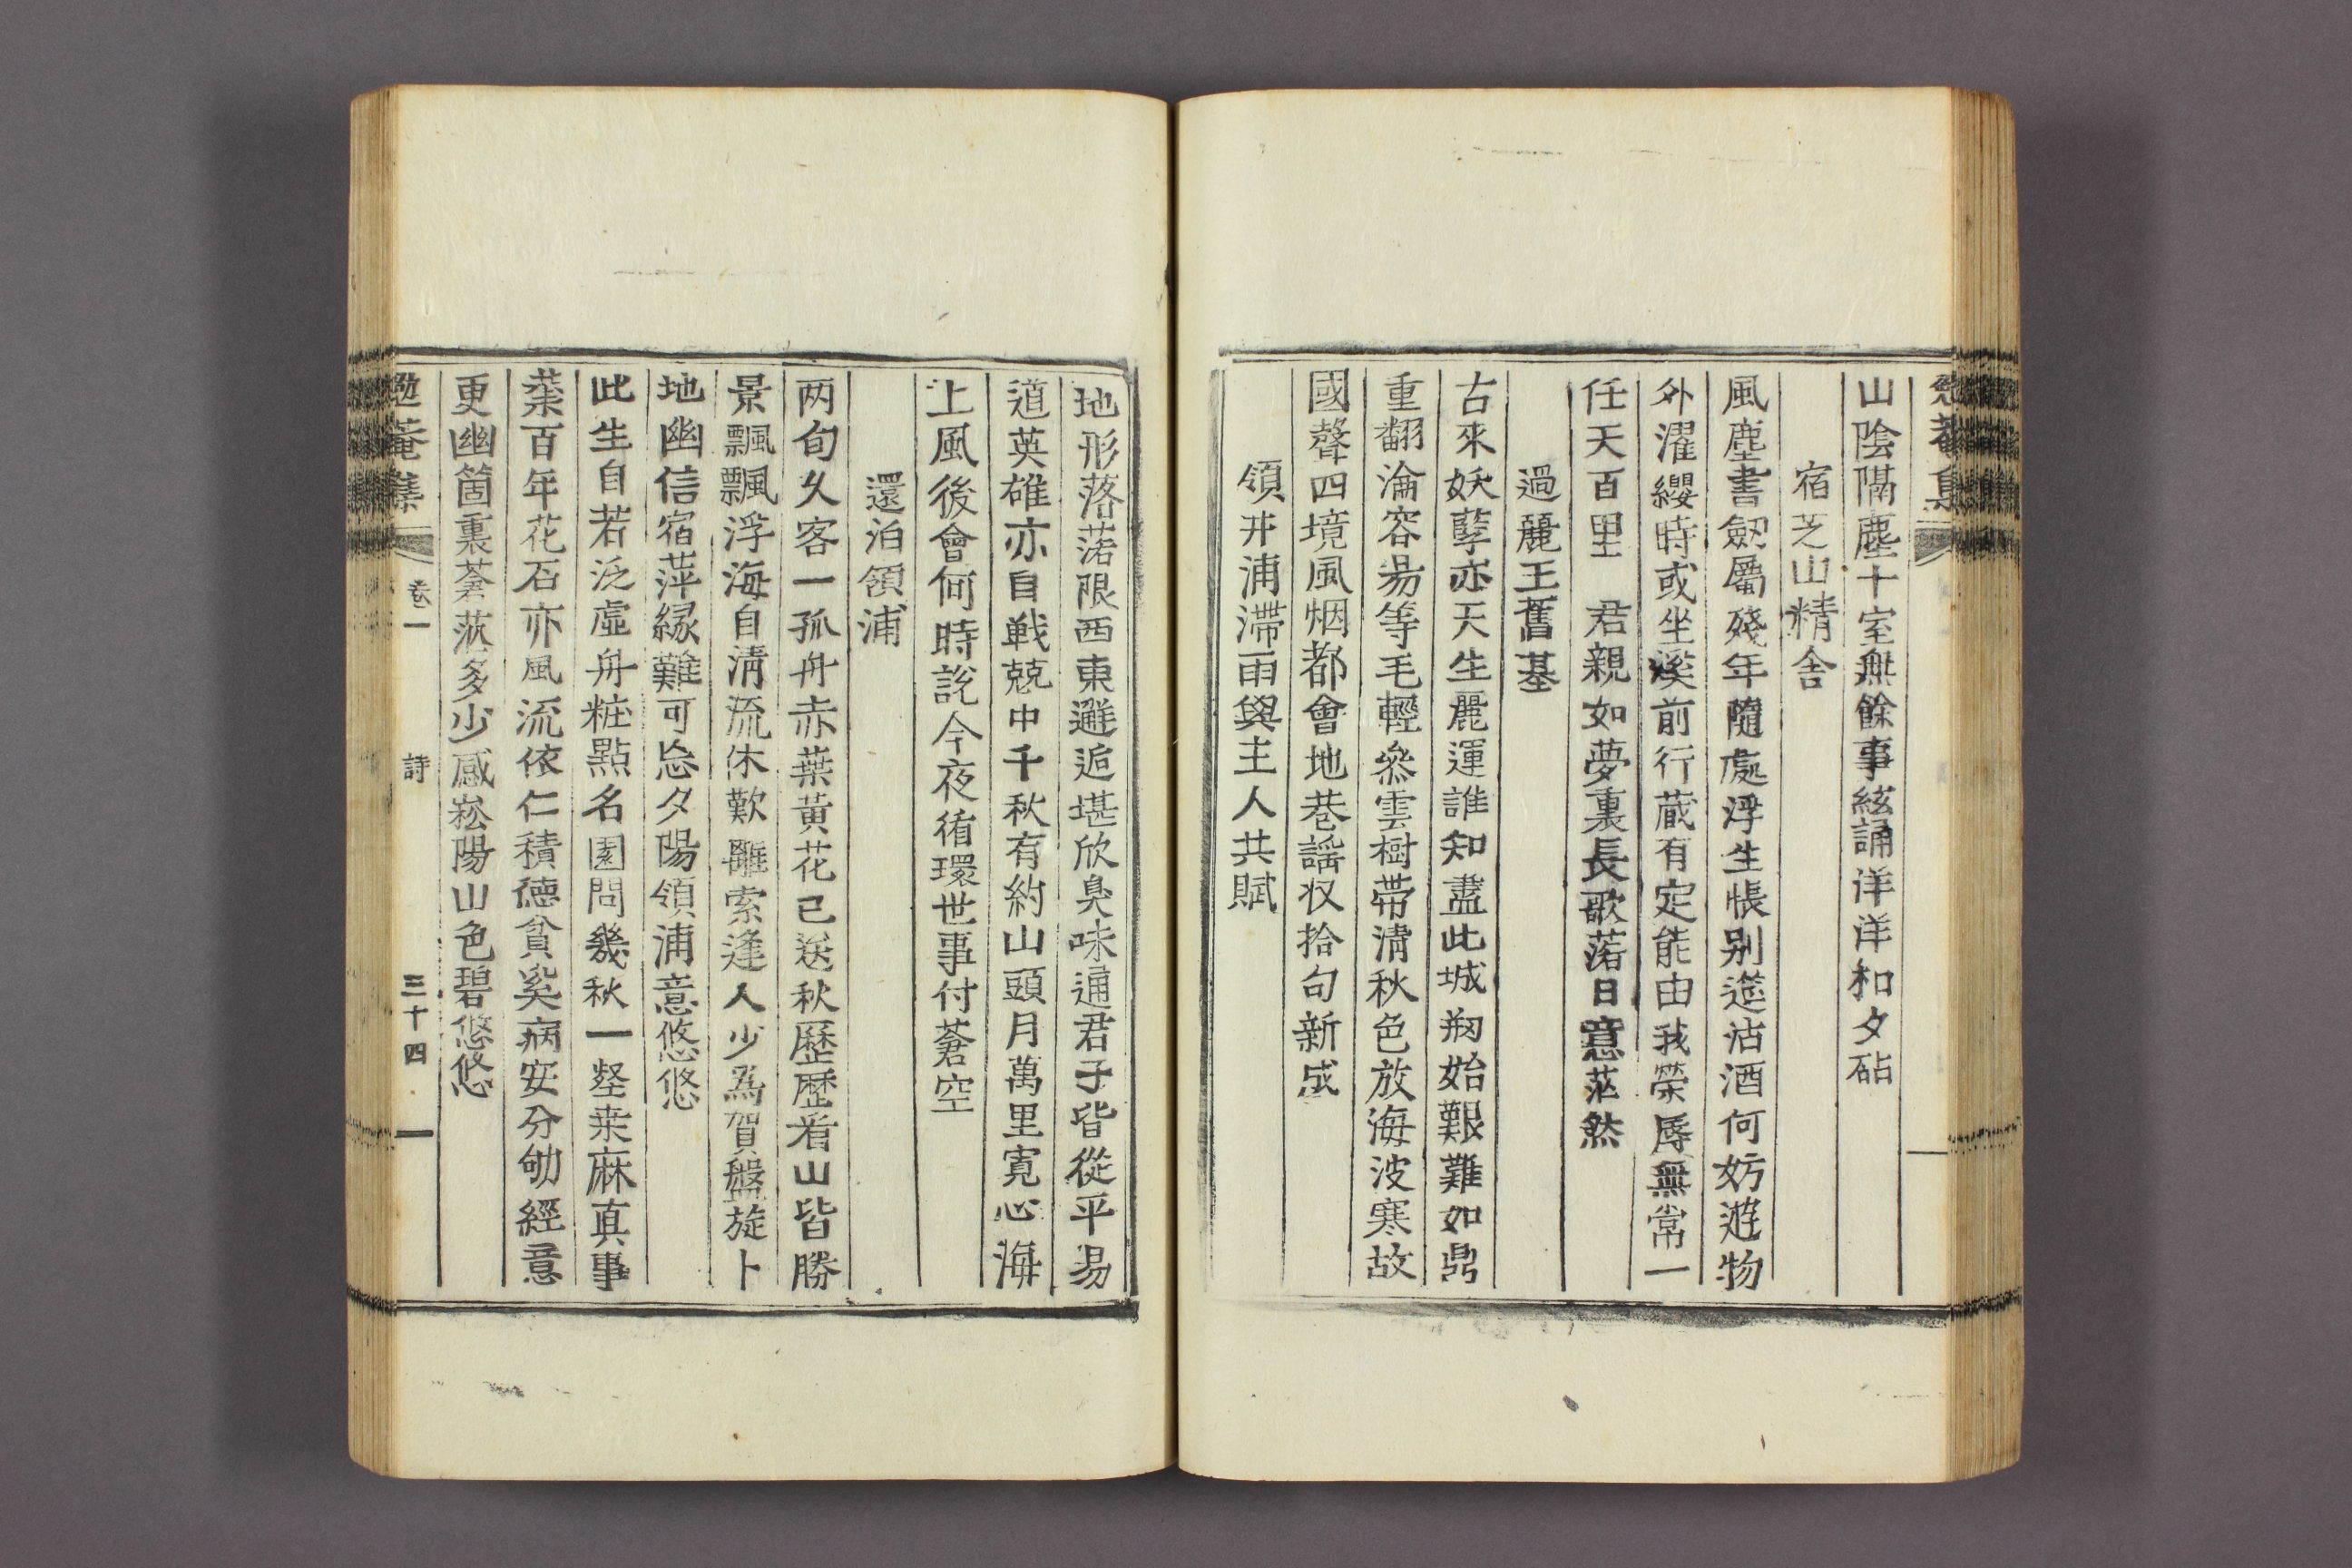 山陰隔塵十室無餘事絃誦洋洋和夕砧
宿芝山精舍
風塵書劒屬殘年隨處浮生悵别筵沽酒何妨遊物
外濯纓時或坐溪前行藏有定能由我榮辱無常一
任天百里 君親如夢裏長歌落日意茫然
過麗王舊基
古來妖孽亦天生麗運誰知盡此城刱始艱難如鼎
重翻淪容易等毛輕叅雲樹帶淸秋色放海波寒故
國聲四境風烟都會地巷謡収拾句新成
領井浦滯雨與主人共賦
地形落落限西東邂逅堪欣臭味通君子皆從平易
道英雄亦自戦兢中千秋有約山頭月萬里寛心海
上風後會何時說今夜循環世事付蒼空
還泊領浦
两旬久客一孤舟赤葉黃花已送秋歷歷看山皆勝
景飄飄浮海自清流休歎離索逢人少爲賀盤旋卜
地幽信宿萍緣難可忘夕陽領浦意悠悠
此生自若泛虛舟粧點名園問幾秋一壑桒麻真事
葉百年花石亦風流依仁積德貧奚病安分劬經意
更幽箇裏蒼茫多少感崧陽山色碧悠悠
菴集 卷一 詩 三十四